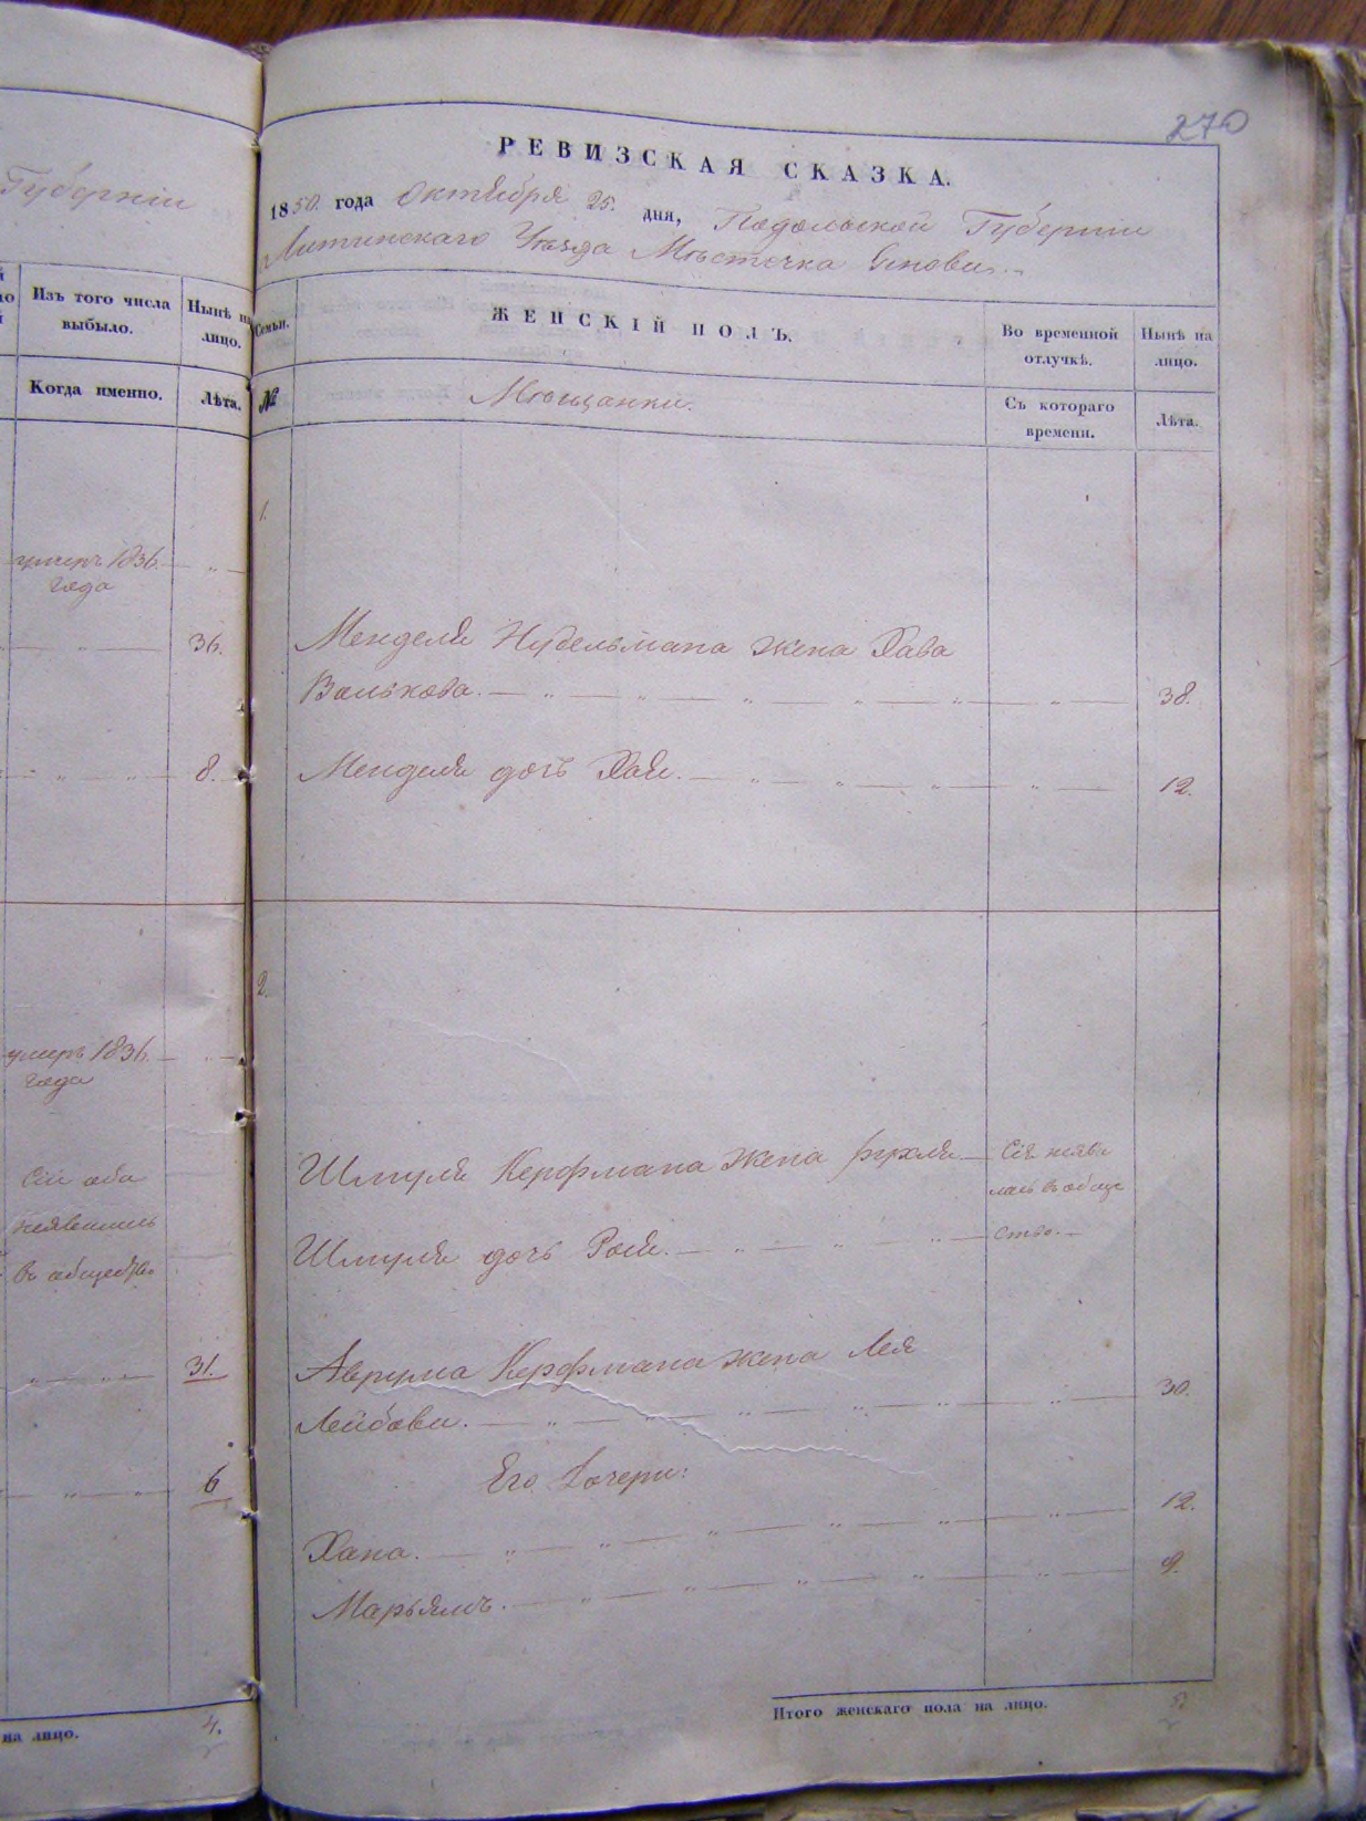 270
Губерніи
РЕВИЗСКАЯ СКАЗКА.
1850. года Октября 25. дня, Подольской Губерніи
Литинскаго Уѣзда Мѣстечка Янова.
Изъ того числа выбыло.
Нынѣ на лицо.
Когда именно.
Лѣта.
умеръ 1836.
года
36.
8.
умеръ 1836.
года
Сіи оба
неявились
въ общество
31.
6
на лицо.
4.
Семьи.
ЖЕНСКІЙ ПОЛЪ.
Во временной
отлучкѣ.
Нынѣ на
лицо.
№
Мѣщанки.
Съ котораго
времени.
Лѣта.
1.
Менделя Нудельмана жена Хава
Волькова. 38.
Менделя дочь Хая. 12.
2.
Шмуля Керфмана жена Рухля Сія неяви
лась въ обще
Шмуля дочь Рося. ство.
Аврума Керфмана жена Лея
Лейбова. 30.
Его дочери:
Хана. 12.
Марьямъ. 9.
Итого женскаго пола на лицо. 5